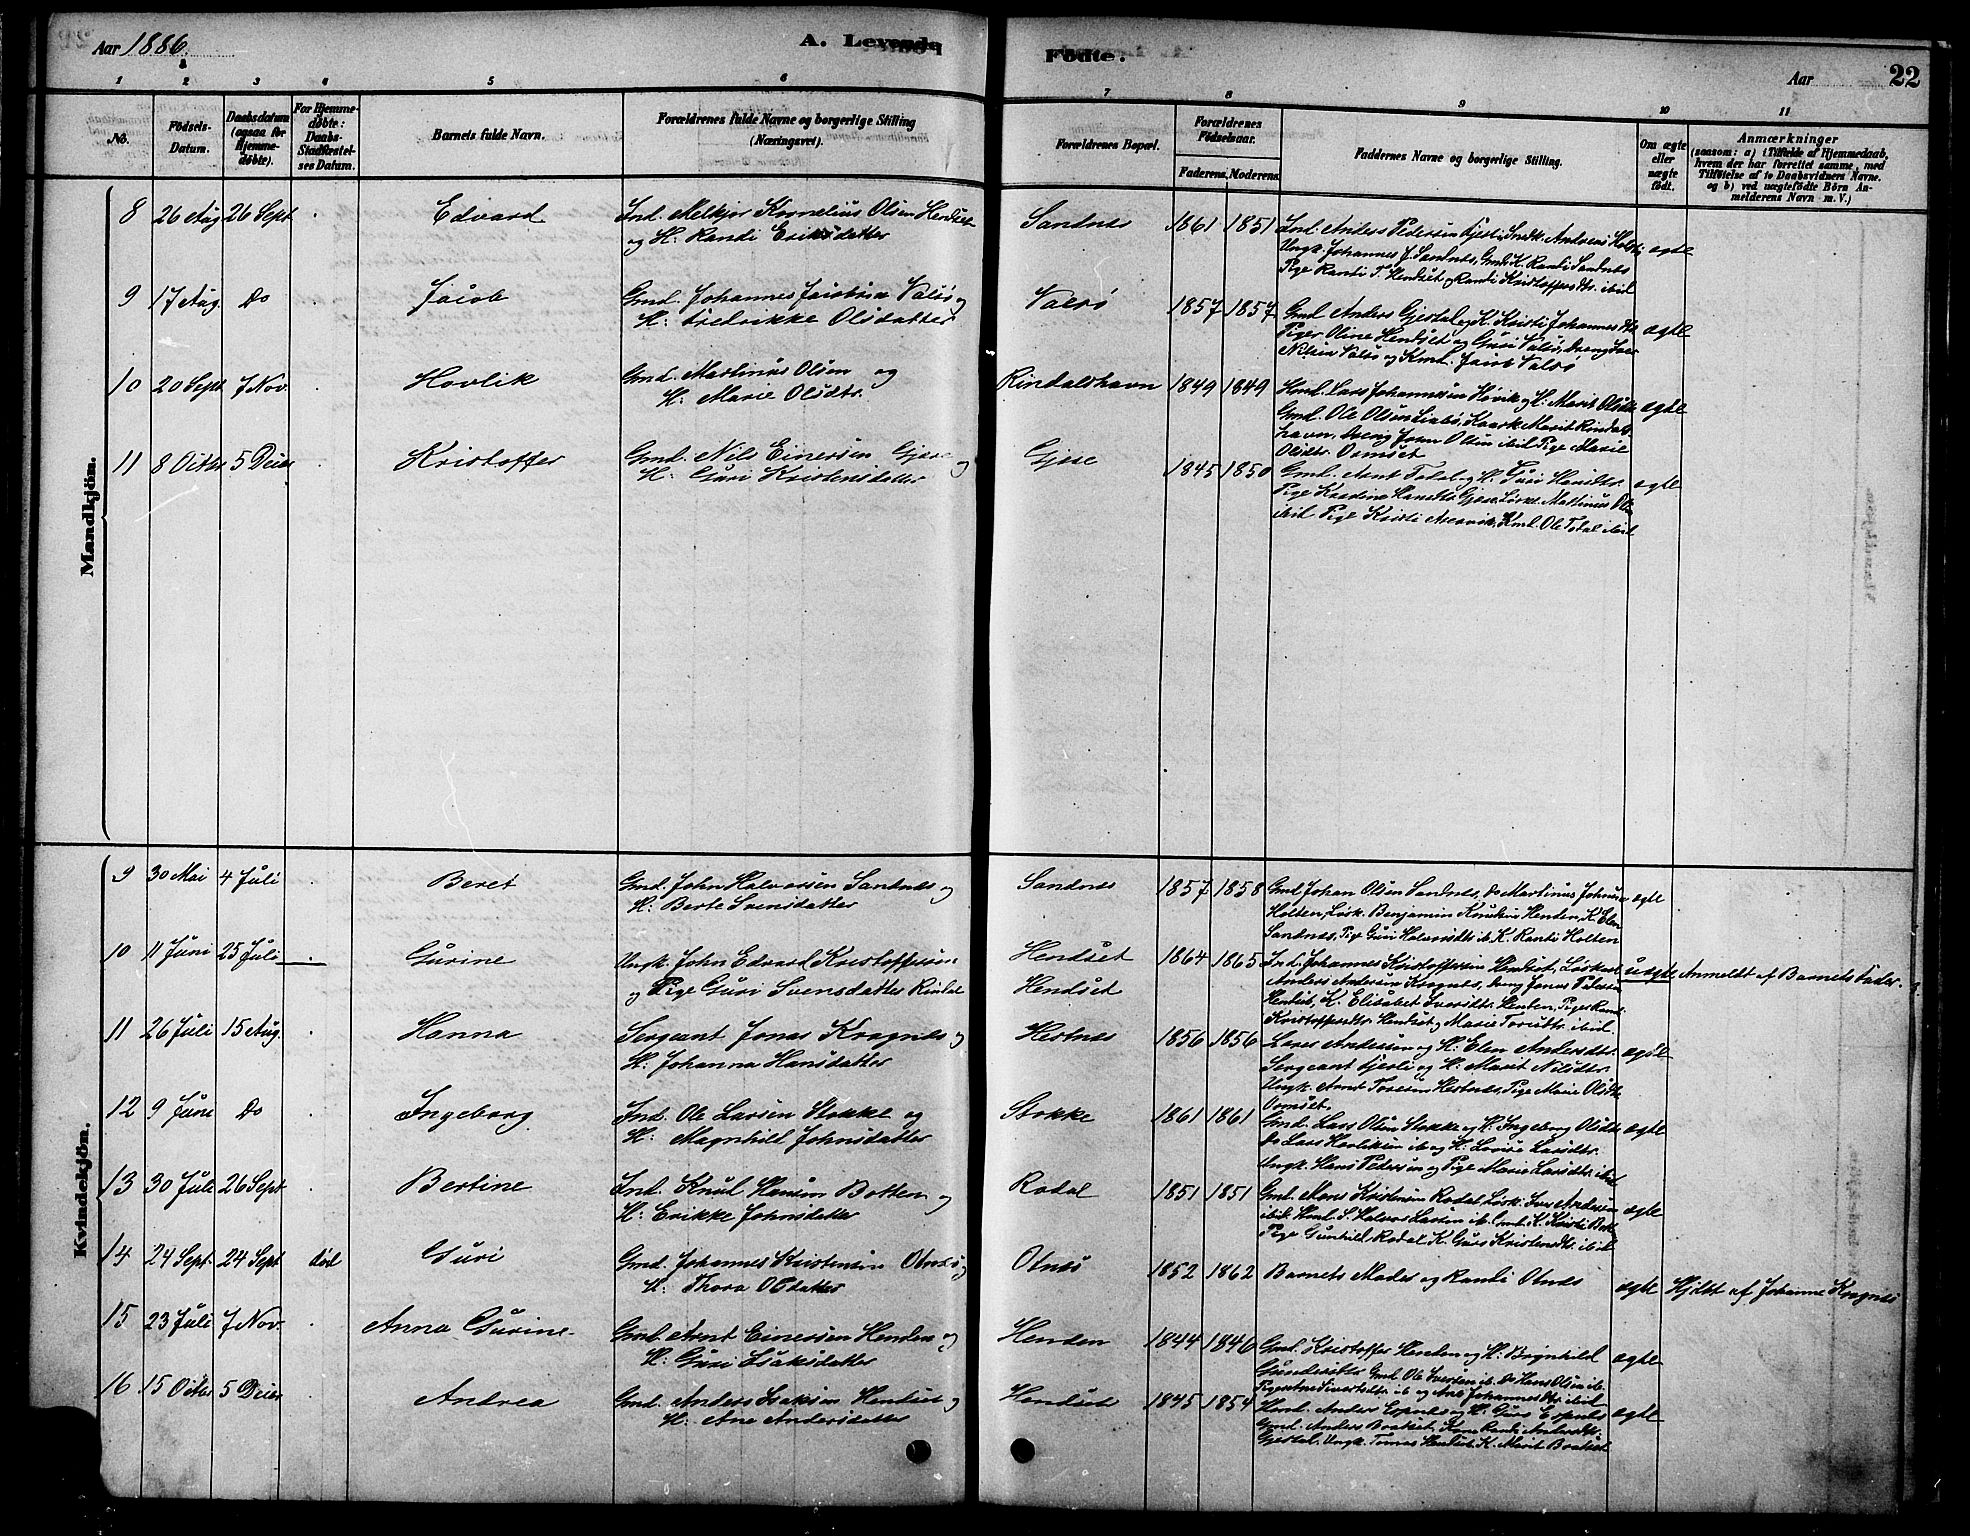 Aar 1886.
A. Levende
Födte.
Aar
22
1 2 3 4 5 6 7 8 9 10 11
No.
Födsels-
Datum.
Daabsdatum
(ogsaa for
Hjemme-
döbte).
For Hjemme-
døbte:
Daabs-
Stadfæstel-
ses Datum.
Barnets fulde Navn.
Forældrenes fulde Navne og borgerlige Stilling
(Næringsvei).
Forældrenes Bopæl.
Forældrenes
Födselsaar.
Faderens. Moderens.
Faddernes Navne og borgerlige Stilling.
Om ægte
eller
uægte
födt.
Anmærkninger
(saasom: a) i Tilfælde af Hjemmedaab,
hvem der har forrettet samme, med
Tilföielse af to Daabsvidners Navne,
og b) ved uægtefödte Börn An-
melderens Navn m. V.)
Mandkjön.
8 26 Aug 26 Sept Edvard Ind. Melkjor Kornelius Olsen Hendset
og H: Randi Eriksdatter
Sandnes 1861 1851 Ind. Anders Pedersen
Ungk. Johannes J. Sandnes, Gmd. K. Randi Sandnes
Pige Randi T. Hendset og Randi Kristoffersdtr. ibid
ægte
9 17 Aug. Do Jacob Gmd. Johannes Jacobsen Valsø og
H: Fredrikke Olsdatter
Valsø 1857 1857 Gmd Anders Gjestal og K. Kristi Johannesdtr
Piger Oline Hendset og Guri Valsø, Dreng Iver
Nilsen Valsø og Kmd. Jacob Valsø
ægte
10 20 Sept 7 Nov. Hovlik Gmd. Martinus Olsen og
H: Marie Olsdtr.
Rindalshavn 1849 1849 Lars Johannessen Høvik og H: Marit Olsdtr
Gmd. Ole Olsen Marit Rindals-
havn, Dreng John Olsen ibid Pige Marie
Olsdtr. Oomset
ægte
11 8 Octbr 5 Decbr Kristoffer Gmd. Nils Einersen Gjøse og
H: Guri Kristensdatter
Gjøse 1845 1850 Gmd. Arnt Todal og H: Guri Hansdtr.
Pige Hansdtr. Gjøse Martinus Olsen
ibid Pige Kristi Kmd. Ole Todal ibid
ægte
Kvindekjön.
9 30 Mai 4 Juli Beret Gmd. John Halvorsen Sandnes og
H: Berte Svensdatter
Sandnes 1857 1858 Gmd Johan Olsen Sandnes, Do Martinus Johnsen
Holten, Benjamin Knudsen Henden, K. Elen
Sandnes, Pige Guri Halvorsdtr ib. K. Randi Holten
ægte
10 11 Juni 25 Juli Gurine Ungk. John Edvard Kristoffersen
og Pige Guri Svensdatter Rindal
Hendset
Hendset
1864 1865 Ind. Johannes Kristoffersen Hendset,
Anders Andersen Kragnes, Dreng Jonas Pedersen
Hendset, K. Elisabet Iversdtr. Henden, Pige Randi
Kristoffersdtr. Hendset og Marie Toresdtr. ibid.
uægte Anmeldt af Barnets Fader.
11 26 Juli 15 Aug. Hanna Sergeant Jonas Kragnes og
H: Johanna Hansdatter
Hestnes 1856 1856 Lars Andersen og H: Elen Andersdtr.
Sergeant og H: Marit Nilsdtr.
Ungk. Arnt Toresen Hestnes, Pige Marie Olsdtr.
Oomset.
ægte
12 9 Juni Do Ingeborg Ind. Ole Larsen Stokke og
H: Magnhild Johnsdatter
Stokke 1861 1861 Gmd. Lars Olsen Stokke og H: Ingeborg Olsdtr
Do Lars Hovliksen ib og H: Lovise Larsdtr.
Ungk. Hans Pedersen og Pige Marie Larsdtr. ibid
ægte
13 30 Juli 26 Sept Bertine Ind. Knut Hansen Botten og
H: Erikke Johnsdatter
Rodal 1851 1851 Gmd. Mons Kristensen Rodal, Iver Andersen
ibid. Halvor Larsen ib. Gmd. K. Kristi
Pige Gunhild Rodal K. Guri Kristensdtr. ibid
ægte
14 24 Sept. 24 Sept død Guri Gmd. Johannes Kristensen Otnes og
H: Thora Olsdatter
Otnes 1852 1862 Barnets Moder og Randi Otnes
ægte Hjdbt af Johanne Kragnes
15 23 Juli 7 Nov. Anna Gurine Gmd. Arnt Einersen Henden og
H: Guri Isaksdatter
Henden 1844 1846 Gmd. Kristoffer Henden og H: Brynhild
Gundersdtr Gmd Ole Iversen ib. Do Hans Olsen ib.
Sivertsdtr. ib og Ane Johannesdtr. ibid
ægte
16 15 Octbr 5 Decbr Andrea Gmd. Anders Isaksen Hendset og
H: Ane Andersdatter
Hendset 1845 1854 Anders Espnes og H: Guri Espnes
Gmd. Anders Randi Andersdtr.
Gjestal, Ungk. Tomas Hendset, K. Marit
ægte